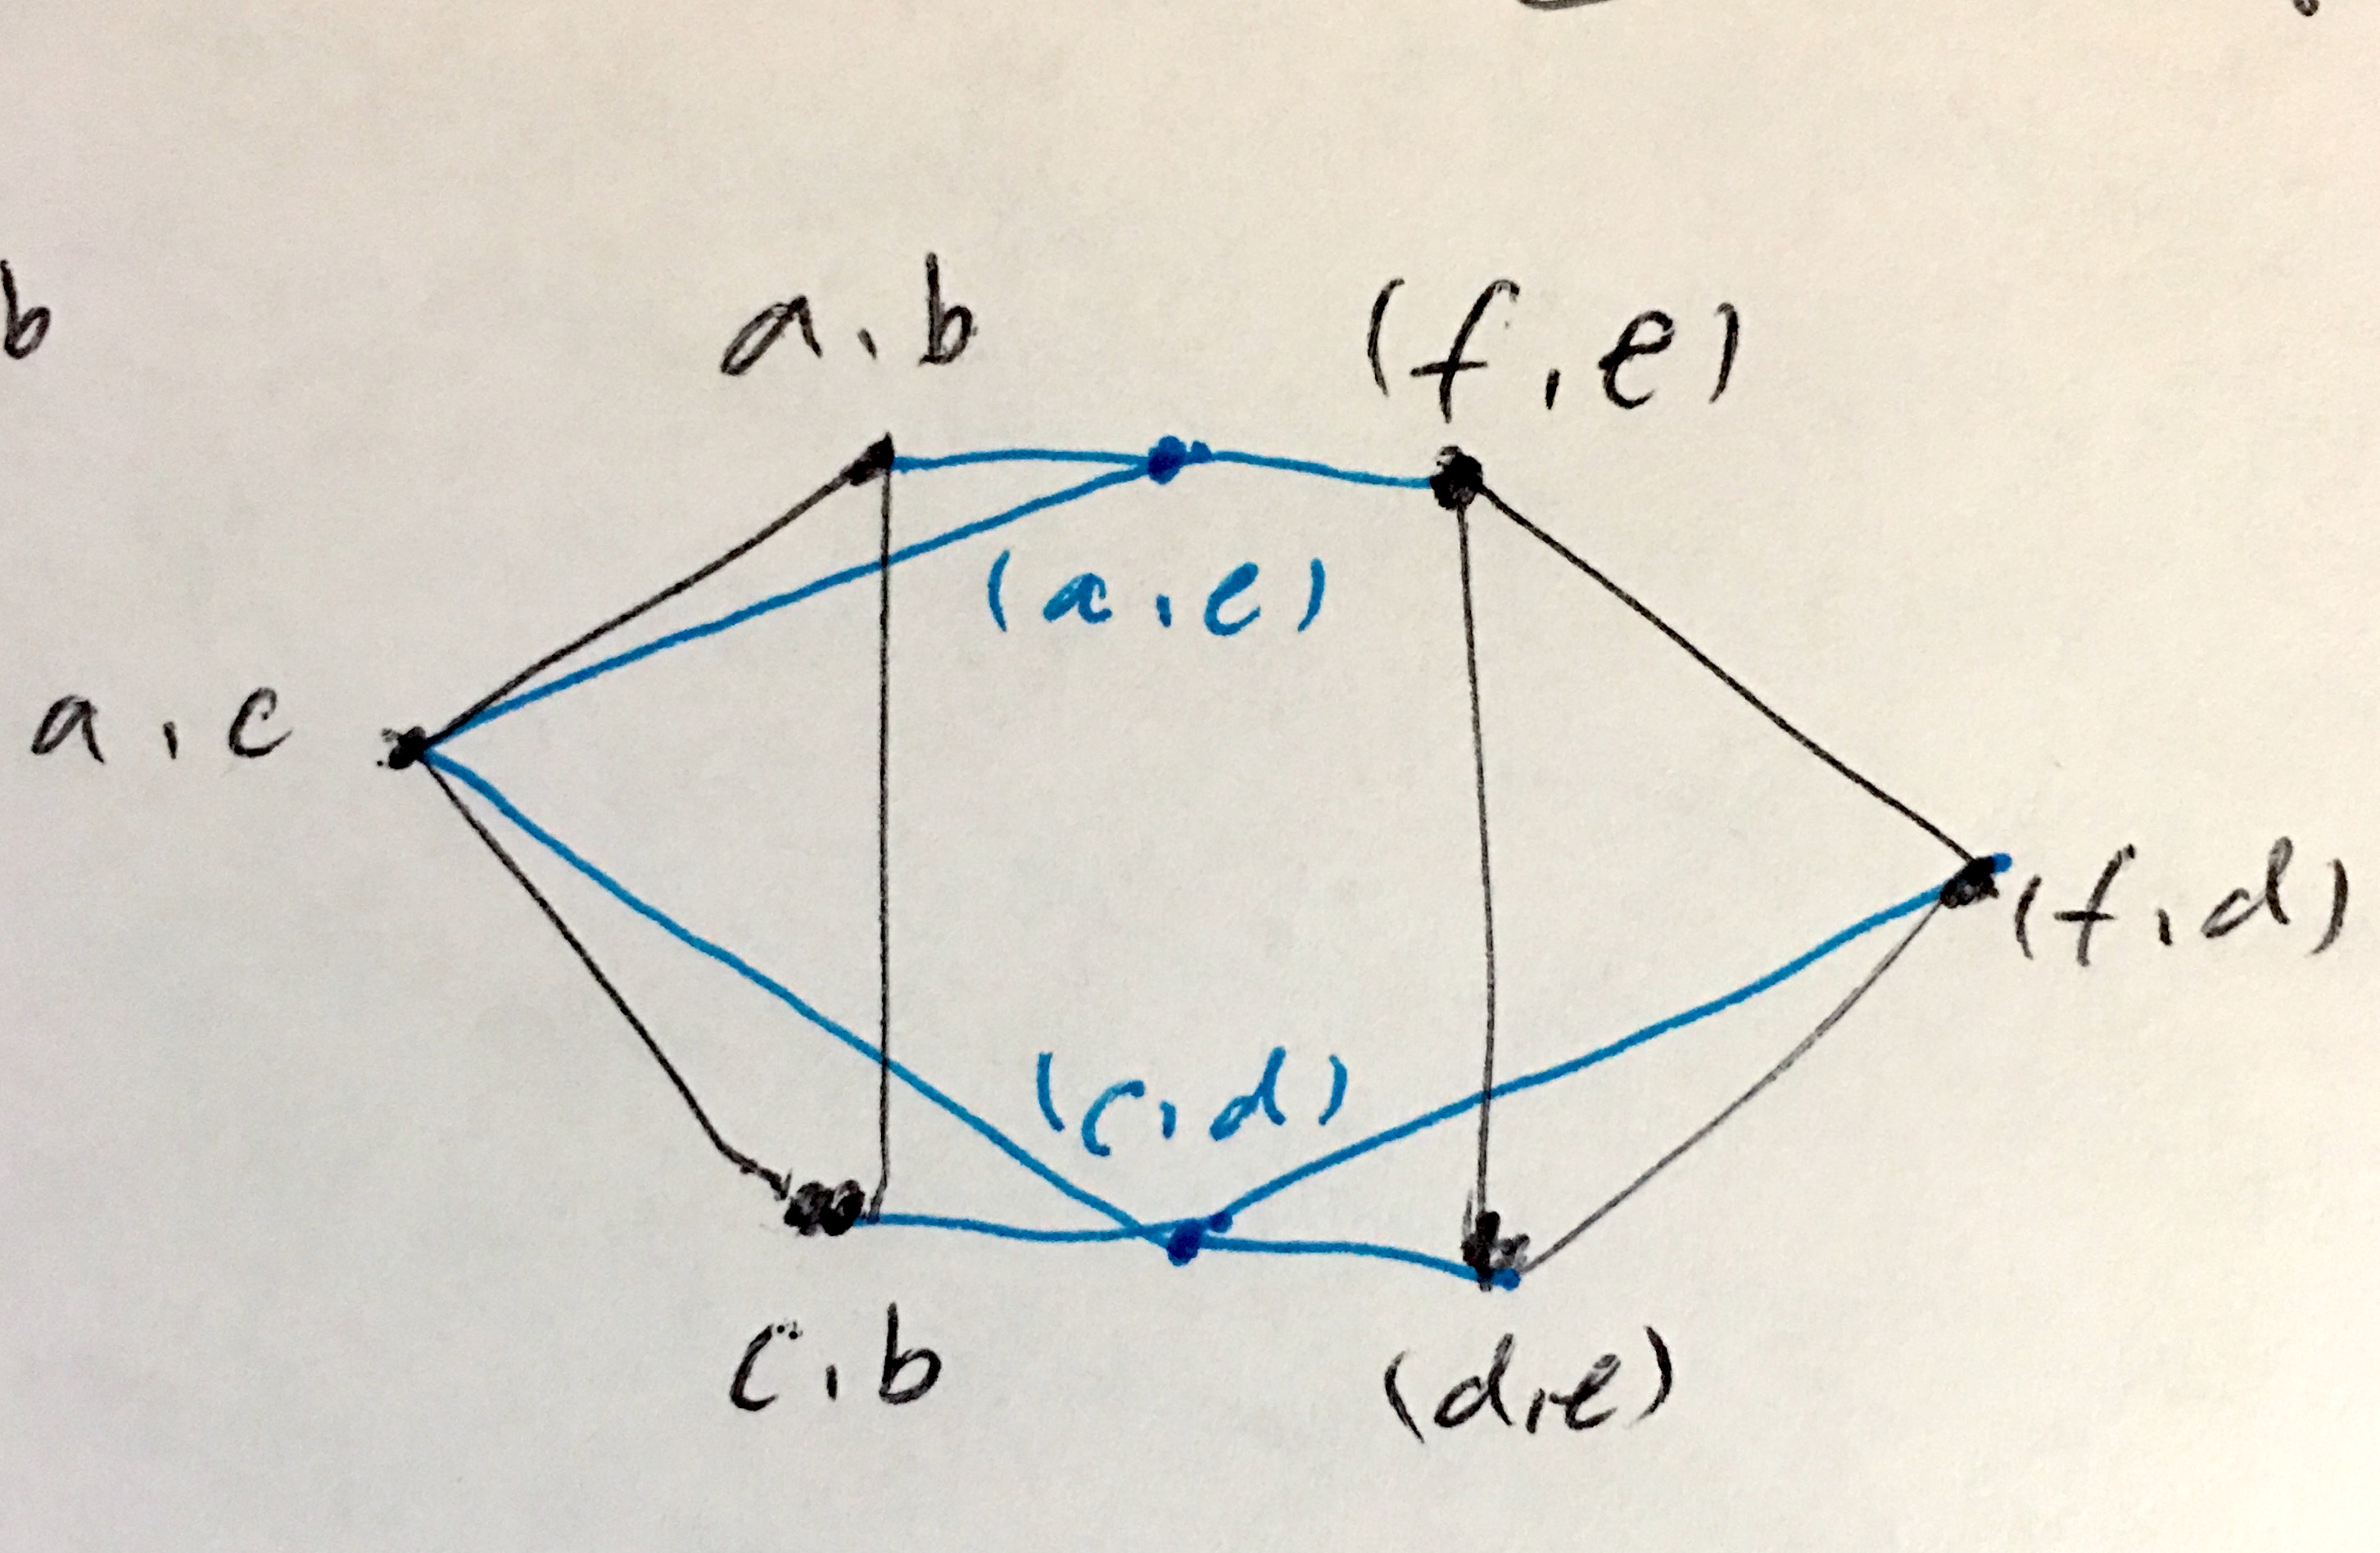 b
a, b
(f, e)
(a, e)
a, c
(f, d)
(c, d)
c, b
(d, e)